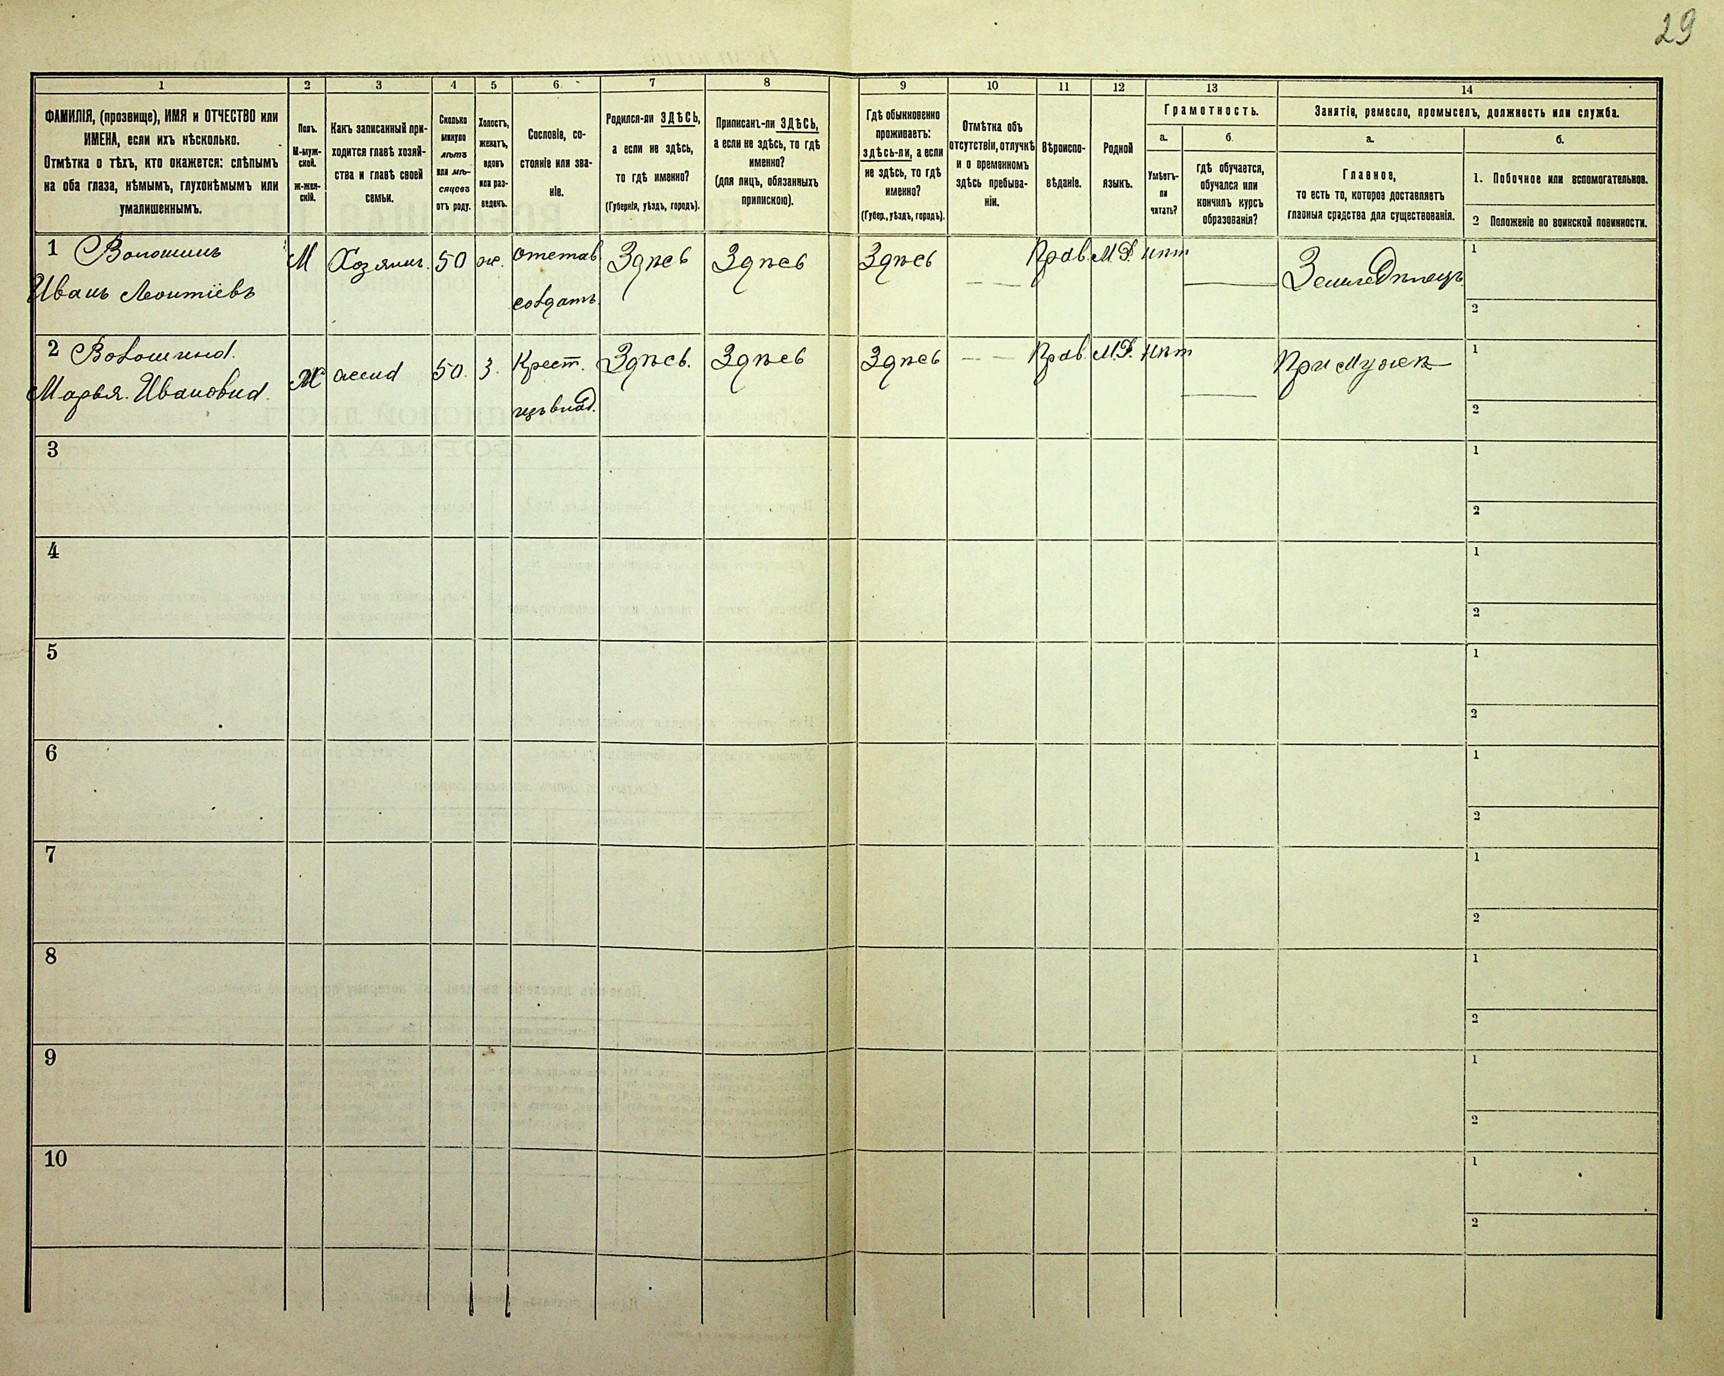 29
1
2
3
4
5
6
7
8
9
10
11
12
13
14
ФАМИЛІЯ, (прозвище), ИМЯ и ОТЧЕСТВО или
ИМЕНА, если ихъ нѣсколько.
Отмѣтка о тѣхъ, кто окажется: слѣпымъ
на оба глаза, нѣмымъ, глухонѣмымъ или
умалишеннымъ.
Полъ.
М-муж-
ской.
ж-жен-
скій.
Какъ записанный при-
ходится главѣ хозяй-
ства и главѣ своей
семьи.
Сколько
минуло
лѣтъ
или мѣ-
сяцевъ
отъ роду.
Холостъ,
женатъ,
вдовъ
или раз-
веденъ.
Сословіе, со-
стояніе или зва-
ніе.
Родился-ли ЗДѢСЬ,
а если не здѣсь,
то гдѣ именно?
(Губернія, уѣздъ, городъ).
Приписанъ-ли ЗДѢСЬ,
а если не здѣсь, то гдѣ
именно?
(для лицъ, обязанныхъ
припискою).
Гдѣ обыкновенно
проживаетъ:
здѣсь-ли, а если
не здѣсь, то гдѣ
именно?
(Губер., уѣздъ, городъ).
Отмѣтка объ
отсутствіи, отлучкѣ
и о временномъ
здѣсь пребыва-
ніи.
Вѣроиспо-
вѣданіе.
Родной
языкъ.
Грамотность.
а.
Умѣетъ-
ли
читать?
б.
гдѣ обучается,
обучался или
кончилъ курсъ
образованія?
Занятіе, ремесло, промыселъ, должность или служба.
а.
Главное,
то есть то, которое доставляетъ
главныя средства для существованія.
б.
1. Побочное или вспомогательное.
2 Положеніе по воинской повинности.
1 Волошинъ
Иванъ Леонтіевъ
М
Хозяинъ.
50
же.
отстав
солдатъ.
Здѣсь
Здѣсь
Здѣсь
— —
Прав.
М.Р.
нѣт
—
Земледѣлецъ
1
2
2 Волошина.
Марья. Ивановна.
Ж
жена
50.
З.
Крест.
Здѣсь.
Здѣсь
Здѣсь
— —
Прав.
М.Р.
нѣт
—
При мужѣ
1
2
3
1
2
4
1
2
5
1
2
6
1
2
7
1
2
8
1
2
9
1
2
10
1
2